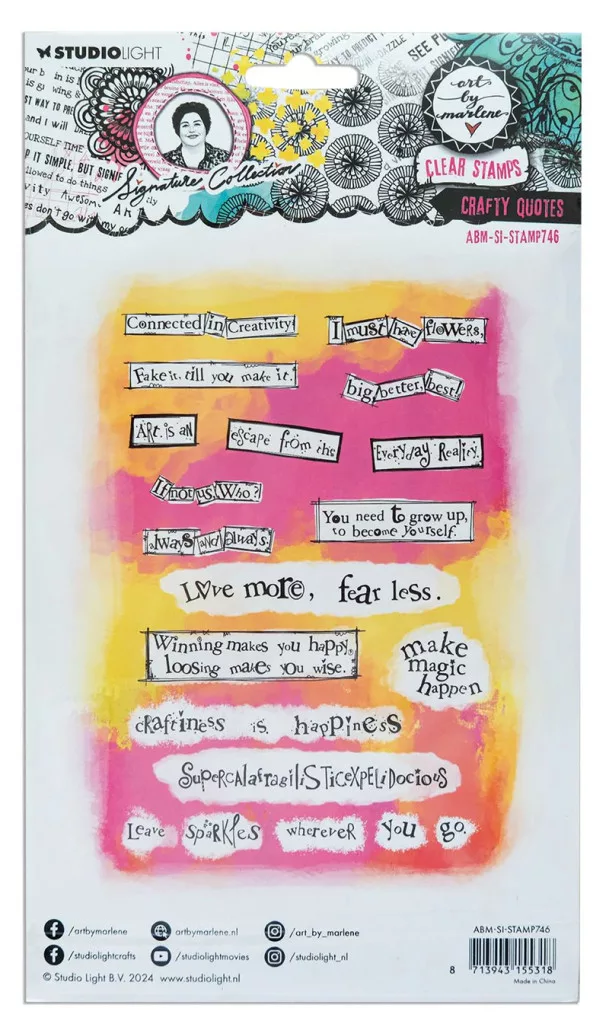 STUDIOLIGHT
art
by
marlene
Signature Collection
CLEAR STAMPS
CRAFTY QUOTES
ABM-SI-STAMP746
Connected in Creativity!
I must have flowers,
Fake it, till you make it.
big, better, best!
ARt is an
escape from the
Everyday Reality.
If not us, Who?
You need to grow up,
to become yourself.
always and always.
Love more, fear less.
Winning makes you happy,
loosing makes you wise.
make
magic
happen
craftiness is happiness
SupercalafragiliSTicexpeliDocious
Leave sparkles wherever you go.
/artbymarlene
artbymarlene.nl
/art_by_marlene
/studiolightcrafts
/studiolightmovies
/studiolight_nl
© Studio Light B.V. 2024 www.studiolight.nl
ABM-SI-STAMP746
8 713943 155318
Made in China